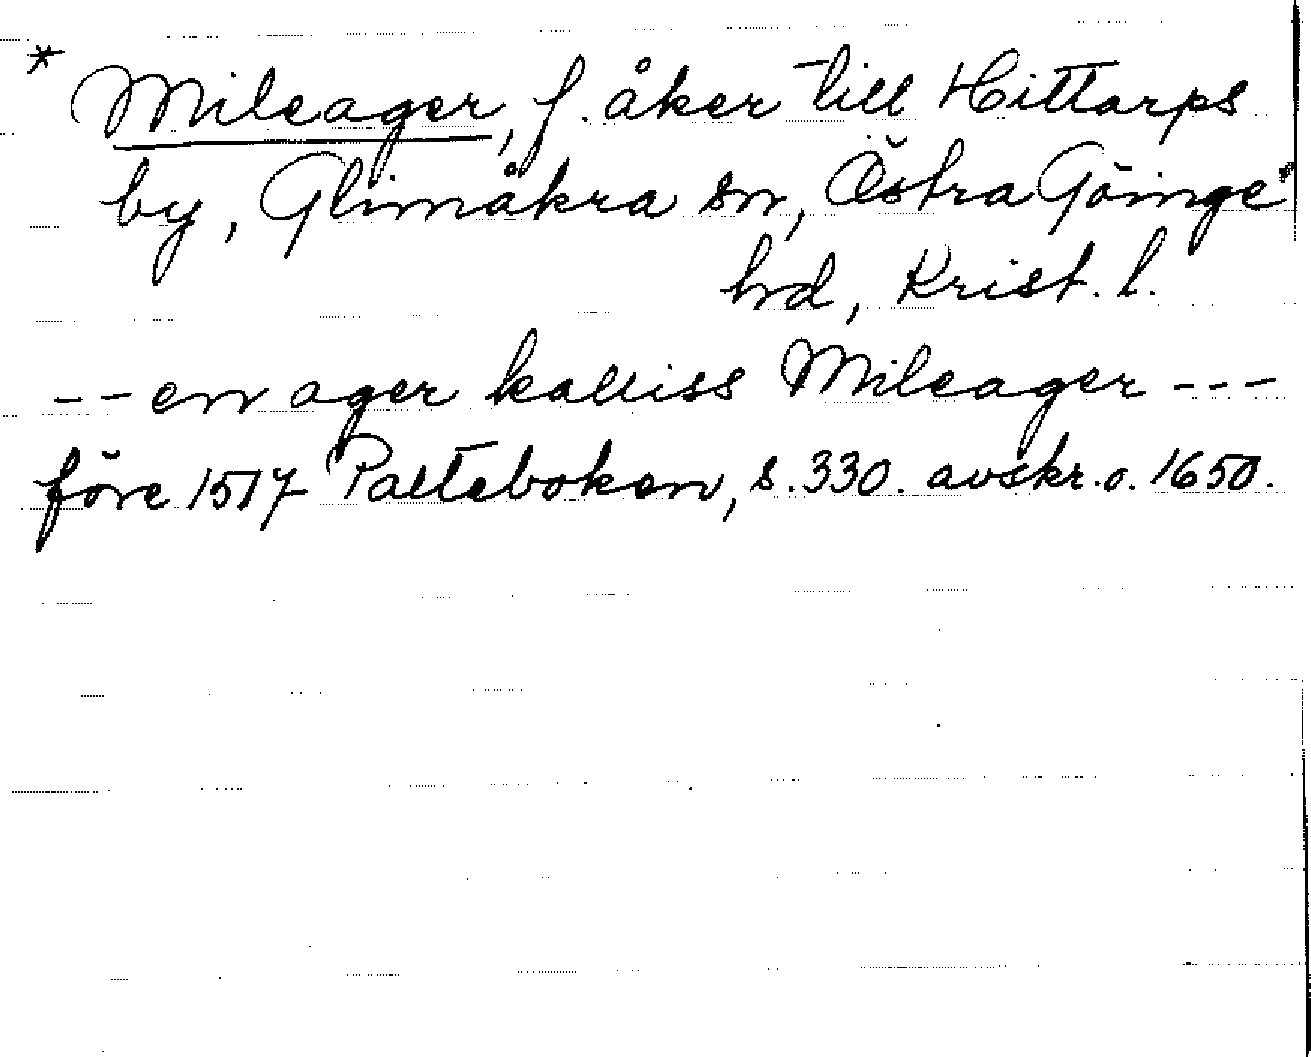 * Mileager, f. åker till Hittarps
by, Glimåkra sn, Östra Göinge
hd, Krist. l.
-- en ager kalliss Mileager ---
före 1517 Palteboken, s. 330. avskr. o. 1650.